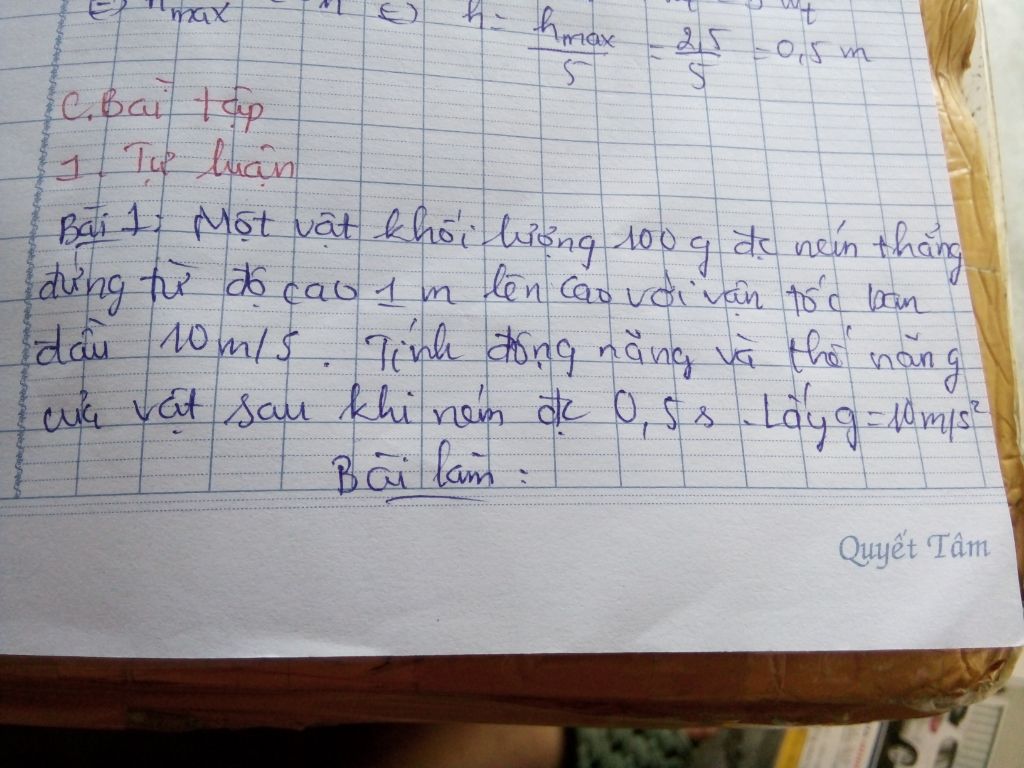 max
h = hmax/5 = 2,5/5 = 0,5 m
C. Bài tập
1. Tự luận
Bài 1: Một vật khối lượng 100 g đc ném thẳng
đứng từ độ cao 1 m lên cao với vận tốc ban
đầu 10 m/s. Tính động năng và thế năng
của vật sau khi ném đc 0,5 s. Lấy g = 10 m/s²
Bài làm:
Quyết Tâm